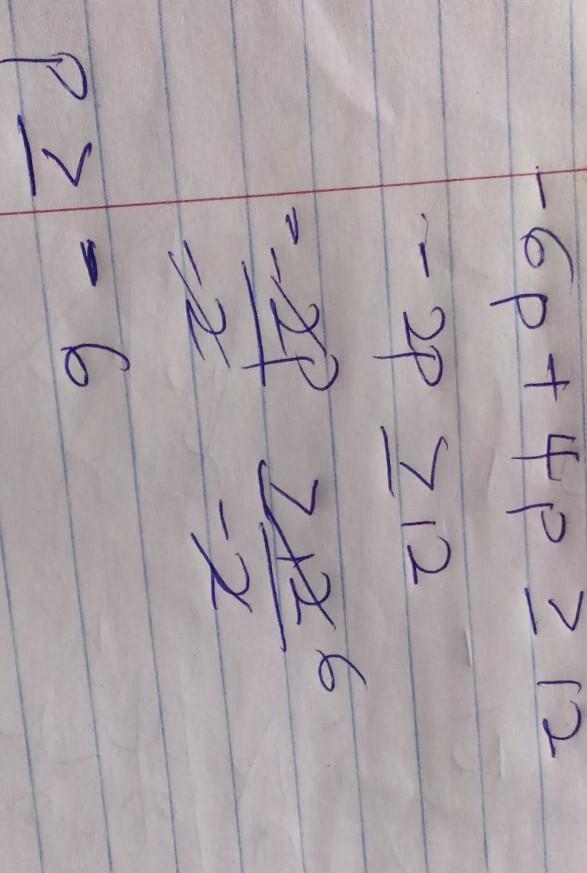 -6p + 4p ≥ 12
-2p ≥ 12
= -2p/-2 ≥ 12/-2 6
p ≥ -6